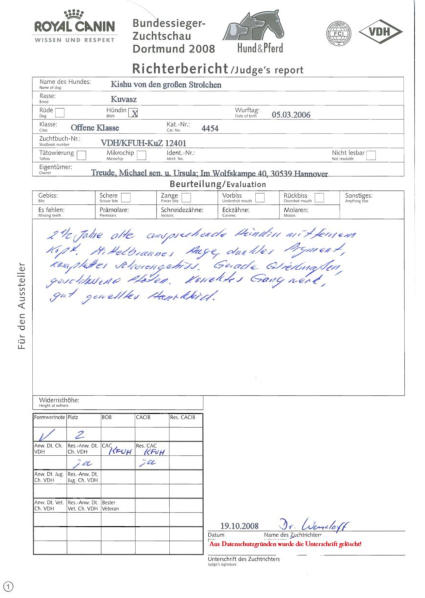 ROYAL CANIN
WISSEN UND RESPEKT
Bundessieger-
Zuchtschau
Dortmund 2008
Hund&Pferd
FCI
VDH
Richterbericht/Judge's report
Name des Hundes:
Name of dog
Kishu von den großen Strolchen
Rasse:
Breed
Kuvasz
Rüde
Dog
Hündin
Bitch
X
Wurftag:
Date of birth
05.03.2006
Klasse:
Class
Offene Klasse
Kat.-Nr.:
Cat. No.
4454
Zuchtbuch-Nr.:
Studbook number
VDH/KFUH-KuZ 12401
Tätowierung
Tattoo
Mikrochip
Microchip
Ident.-Nr.:
Ident. No.
Nicht lesbar
Not readable
Eigentümer:
Owner
Treude, Michael sen. u. Ursula; Im Wolfskampe 40, 30539 Hannover
Beurteilung/Evaluation
Gebiss:
Bite
Schere
Scissor bite
Zange
Pincer bite
Vorbiss
Undershot mouth
Rückbiss
Overshot mouth
Sonstiges:
Anything else
Es fehlen:
Missing teeth
Prämolare:
Premolars
Schneidezähne:
Incisors
Eckzähne:
Canines
Molaren:
Molars
2 1/2 Jahre alte ansprechende Hündin mit
Kopf. M. Helbraunes Auge, dunkles Pigment,
komplettes Scherengebiss. Gerade
geschlossene Pfoten. Korrektes Gangwerk,
gut
Für den Aussteller
Widerristhöhe:
Height at withers
Formwertnote
Platz
BOB
CACIB
Res. CACIB
V
2
Anw. Dt. Ch.
VDH
Res.-Anw. Dt.
Ch. VDH
CAC
KFUH
Res. CAC
KFUH
ja
ja
Anw. Dt. Jug.
Ch. VDH
Res.-Anw. Dt.
Jug. Ch. VDH
Anw. Dt. Vet.
Ch. VDH
Res.-Anw. Dt.
Vet. Ch. VDH
Bester
Veteran
19.10.2008
Dr.
Datum
Name des Zuchtrichters
Aus Datenschutzgründen wurde die Unterschrift gelöscht!
Unterschrift des Zuchtrichters
Judge's signature
1